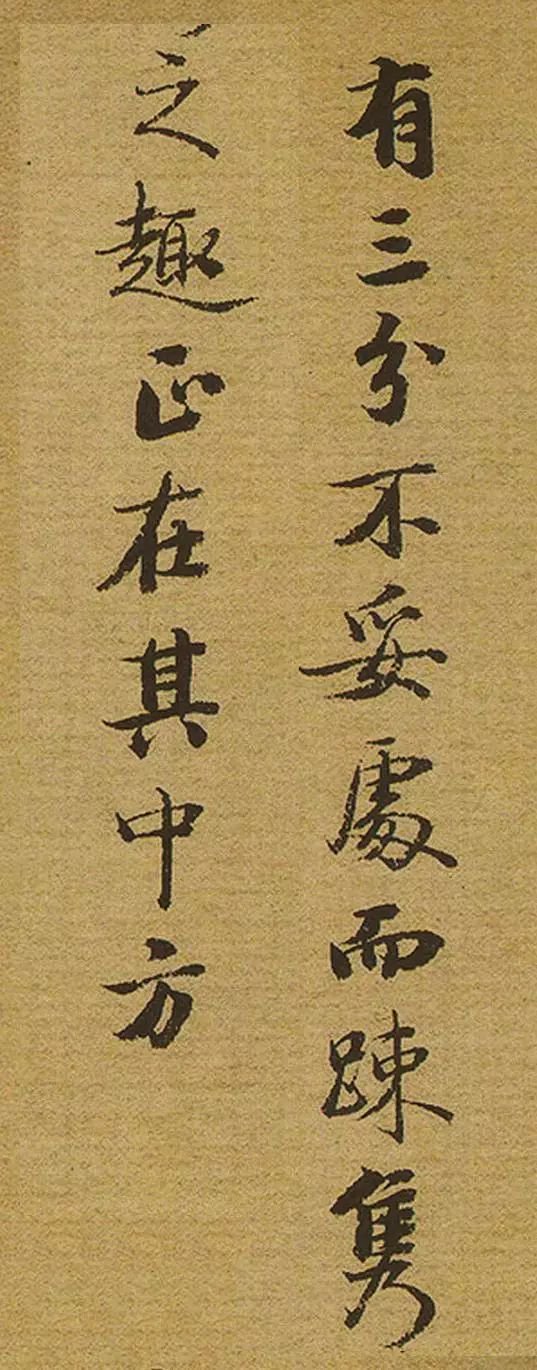 有三分不妥處而踈隽
之趣正在其中方